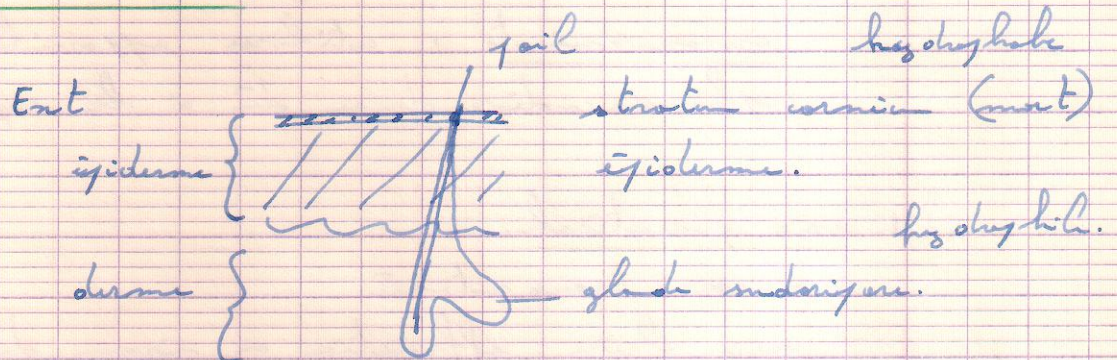 poil hydrophobe
Ext stratum cornéum (mort)
épiderme épiderme.
hydrophile.
derme glande sudoripare.